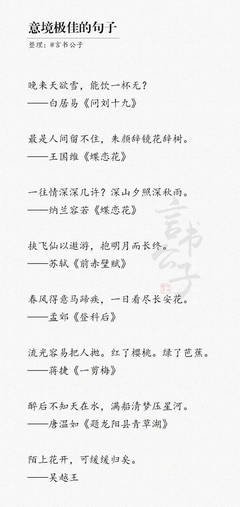 意境极佳的句子
整理：@言书公子
晚来天欲雪，能饮一杯无？
——白居易《问刘十九》
最是人间留不住，朱颜辞镜花辞树。
——王国维《蝶恋花》
一往情深深几许？深山夕照深秋雨。
——纳兰容若《蝶恋花》
挟飞仙以遨游，抱明月而长终。
——苏轼《前赤壁赋》
春风得意马蹄疾，一日看尽长安花。
——孟郊《登科后》
流光容易把人抛。红了樱桃。绿了芭蕉。
——蒋捷《一剪梅》
醉后不知天在水，满船清梦压星河。
——唐温如《题龙阳县青草湖》
陌上花开，可缓缓归矣。
——吴越王
言书公子